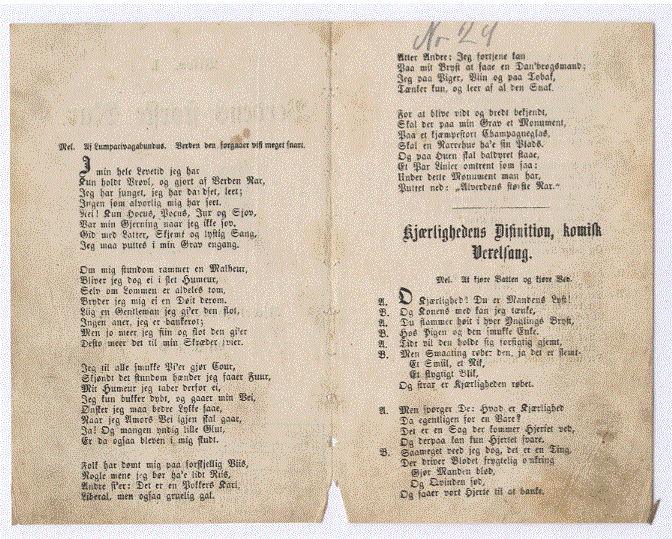 Mel. Af Lumpacivagabundus. Verden den forgaaer vist meget snart.
I min hele Levetid jeg har
Kun holdt Vrøvl, og gjort af Verden Nar,
Jeg har sunget, jeg har dandset, leet;
Ingen som alvorlig mig har seet.
Hei! Kun Hocus, Pocus, Jux og Sjov,
Var min Gjerning naar jeg ikke sov.
Gid med Latter, Skjemt og lystig Sang,
Jeg maa puttes i min Grav engang.
Om mig stundom rammer en Malheur,
Bliver jeg dog ei i slet Humeur,
Selv om Lommen er aldeles tom,
Bryder jeg mig ei en Døit derom.
Liig en Gentleman jeg gi'er den flot,
Ingen aner, jeg er bankerot;
Men jo meer jeg fiin og flot den gi'er
Desto meer det til min Skræder svier.
Jeg til alle smukke Pi'er gjør Cour,
Skjøndt det stundom hænder jeg faaer Fuur,
Mit Humeur jeg taber derfor ei,
Jeg kun bukker dybt, og gaaer min Vei,
Ønsker jeg maa bedre Lykke faae,
Naar jeg Amors Vei igjen skal gaae,
Ja! Og mangen yndig lille Glut,
Er da ogsaa bleven i mig skudt.
Folk har dømt mig paa forskjellig Viis,
Nogle mene jeg bør ha'e lidt Riis,
Andre si'er: Det er en Pokkers Karl,
Liberal, men ogsaa gruelig gal.
No 29
Atter Andre: Jeg fortjene kan
Paa mit Bryst at faae en Dan'brogsmand;
Jeg paa Piger, Viin og paa Tobak,
Tænker kun, og leer af al den Snak.
For at blive vidt og bredt bekjendt,
Skal der paa min Grav et Monument,
Paa et kjæmpestort Champagneglas,
Skal en Narrehue ha'e sin Plads.
Og paa Huen skal baldyret staae,
Et Par Linier omtrent som saa:
Under dette Monument man har,
Puttet ned: „Alverdens største Nar.“
Kjærlighedens Difinition, komisk
Vexelsang.
Mel. At kjøre Vatten og kjøre Ved.
A. O Kjærlighed! Du er Mandens Lyst!
B. Og Konens med kan jeg tænke,
A. Du flammer høit i hver Ynglings Bryst,
B. Hos Pigen og den smukke Enke.
A. Tidt vil den holde sig forsigtig gjemt,
B. Men Smaating røber den, ja det er slemt.
Et Smiil, et Nik,
Et flygtigt Blik,
Og strax er Kjærligheden røbet.
A. Men spørger De: Hvad er Kjærlighed
Da egentligen for en Vare?
Det er en Sag der kommer Hjertet ved,
Og derpaa kan kun Hjertet svare.
B. Saameget veed jeg dog, det er en Ting,
Der driver Blodet frygtelig omkring
Gjør Manden blød,
Og Qvinden sød,
Og faaer vort Hjerte til at banke.